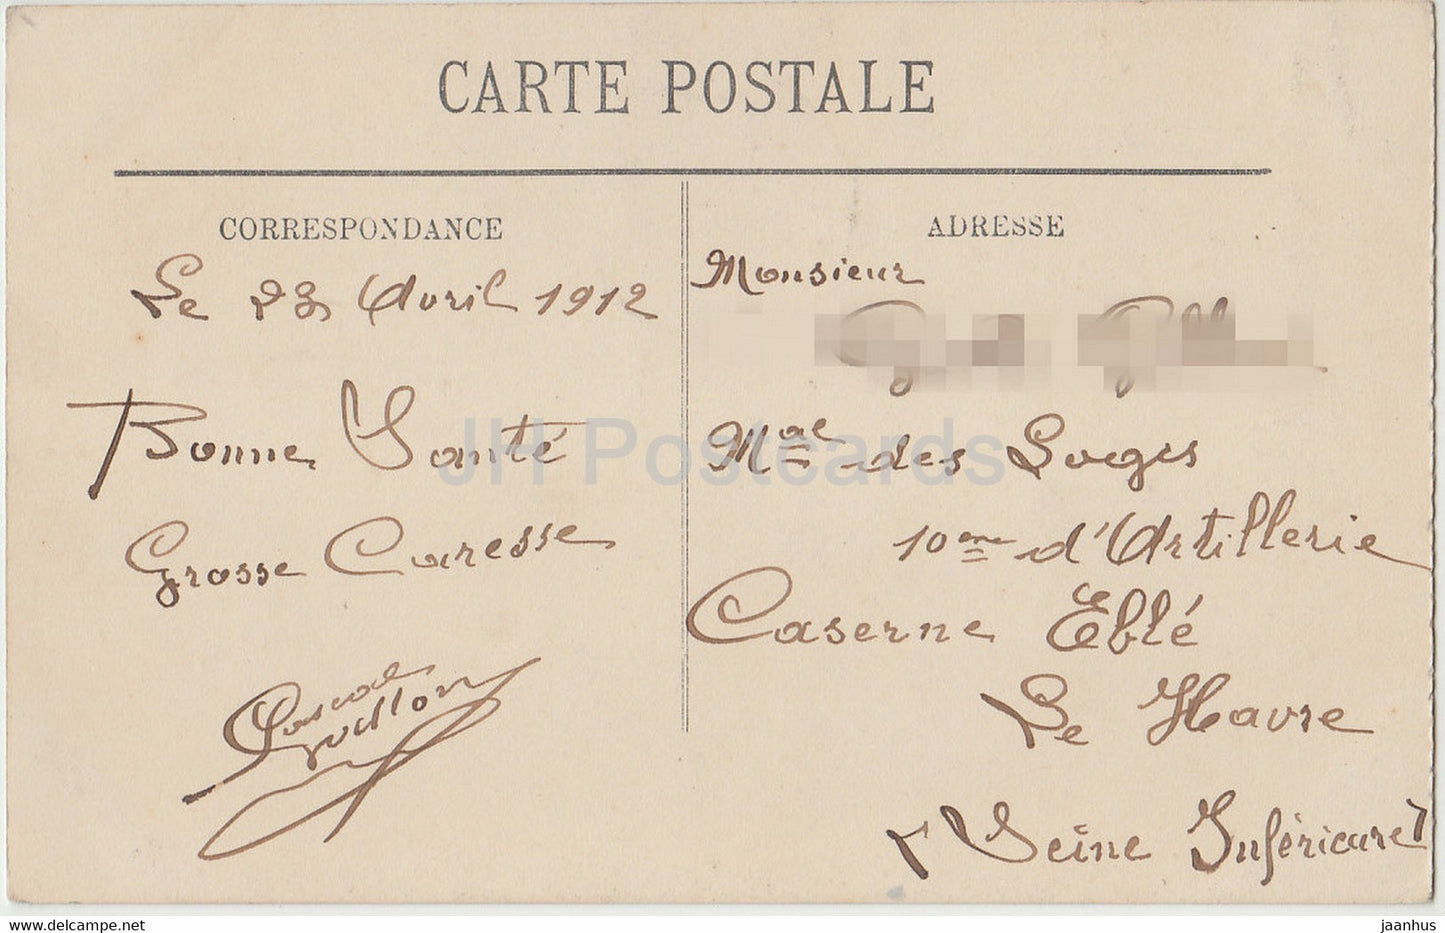 CARTE POSTALE
CORRESPONDANCE
Le 23 Avril 1912
Bonne Santé
Grosse Caresse
Pascal
ADRESSE
Monsieur
Mal des Logis
10eme d'Artillerie
Caserne Eblé
Le Havre
(Seine Inférieure)
JH Postcards
www.delcampe.net
jaanhus